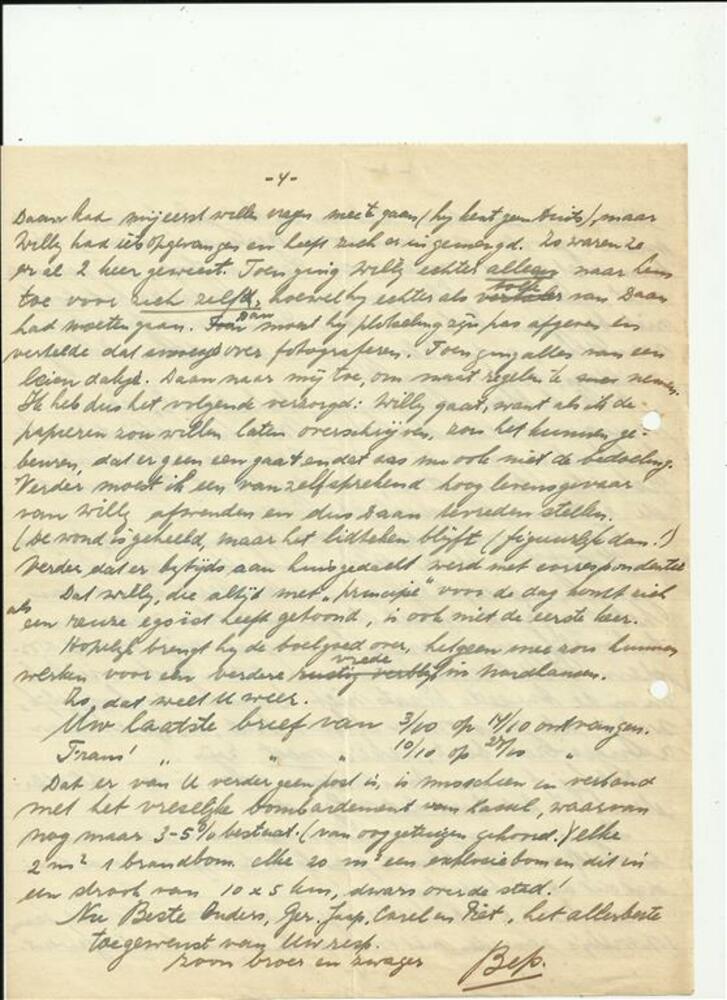 -4-
Daan had mij eerst willen vragen mee te gaan (hij kent geen Duits), maar
Willy had iets opgevangen en heeft zich er in gemengd. Zo waren ze
er al 2 keer geweest. Toen ging Willy echter alleen naar hem
toe voor zich zelf, hoewel hij echter als tolk van Daan
had moeten gaan. Daar moest hij plotseling zijn pas afgeven en
vertelde dat over fotograferen. Toen ging alles van een
leien dakje. Daan naar mij toe, om maat regelen te nemen.
Ik heb dus het volgende verzorgd: Willy gaat, want als ik de
papieren zou willen laten overschrijven, zou het kunnen ge-
beuren, dat er geen een gaat en dat was me ook niet de bedoeling.
Verder moest ik een vanzelfsprekend hoog levensgevaar
van Willy afwenden en dus Daan tevreden stellen.
(De wond is geheeld, maar het lidteken blijft (figuurlijk dan!)
Verder dat er bijtijds aan huis gedacht werd met correspondentie
Dat Willy, die altijd met "principe" voor de dag komt zich
als een reuze egoïst heeft getoond, is ook niet de eerste keer.
Hopelijk brengt hij de boel goed over, hetgeen mee zou kunnen
werken voor een verdere vrede in Nordhausen.
Zo, dat weet U weer.
Uw laatste brief van 3/10 op 14/10 ontvangen.
Frans' " " " 10/10 op 27/10 "
Dat er van U verder geen post is, is misschien in verband
met het vreselijke bombardement van Kassel, waarvan
nog maar 3-5% bestaat. (van ooggetuigen gehoord.) elke
2 m² 1 brandbom. elke 20 m² een explosiebom en dit in
een strook van 10 x 5 km, dwars over de stad!
Nu Beste Ouders, Ger. Jaap, Carel en Piet, het allerbeste
toegewenst van Uw resp.
zoon broer en zwager Bep.